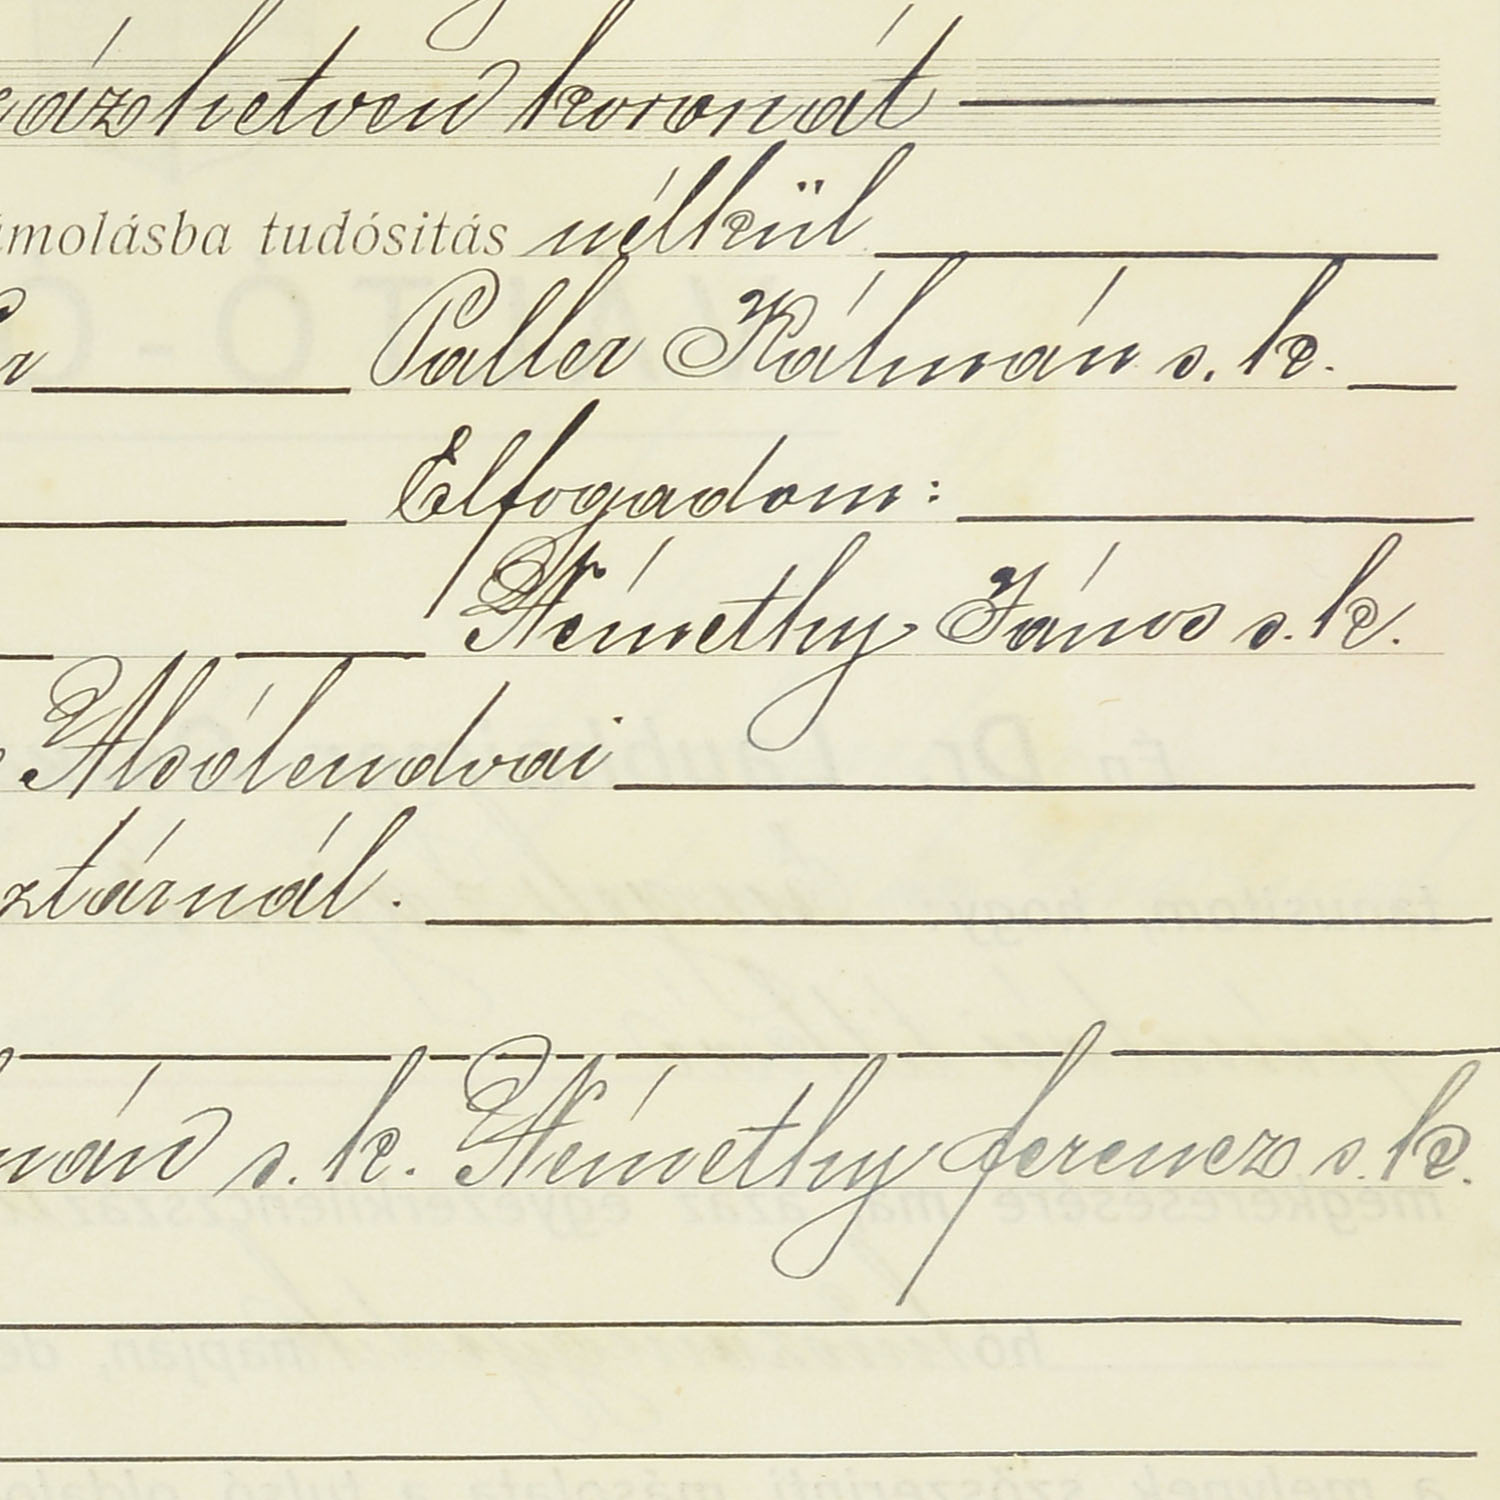 százhetven koronát
ámolásba tudósitás nélkül
Paller Kálmán s. k.
Elfogadom:
Némethy János s. k.
Alsólendvai
ztárnál.
mán s. k. Némethy ferencz s. k.